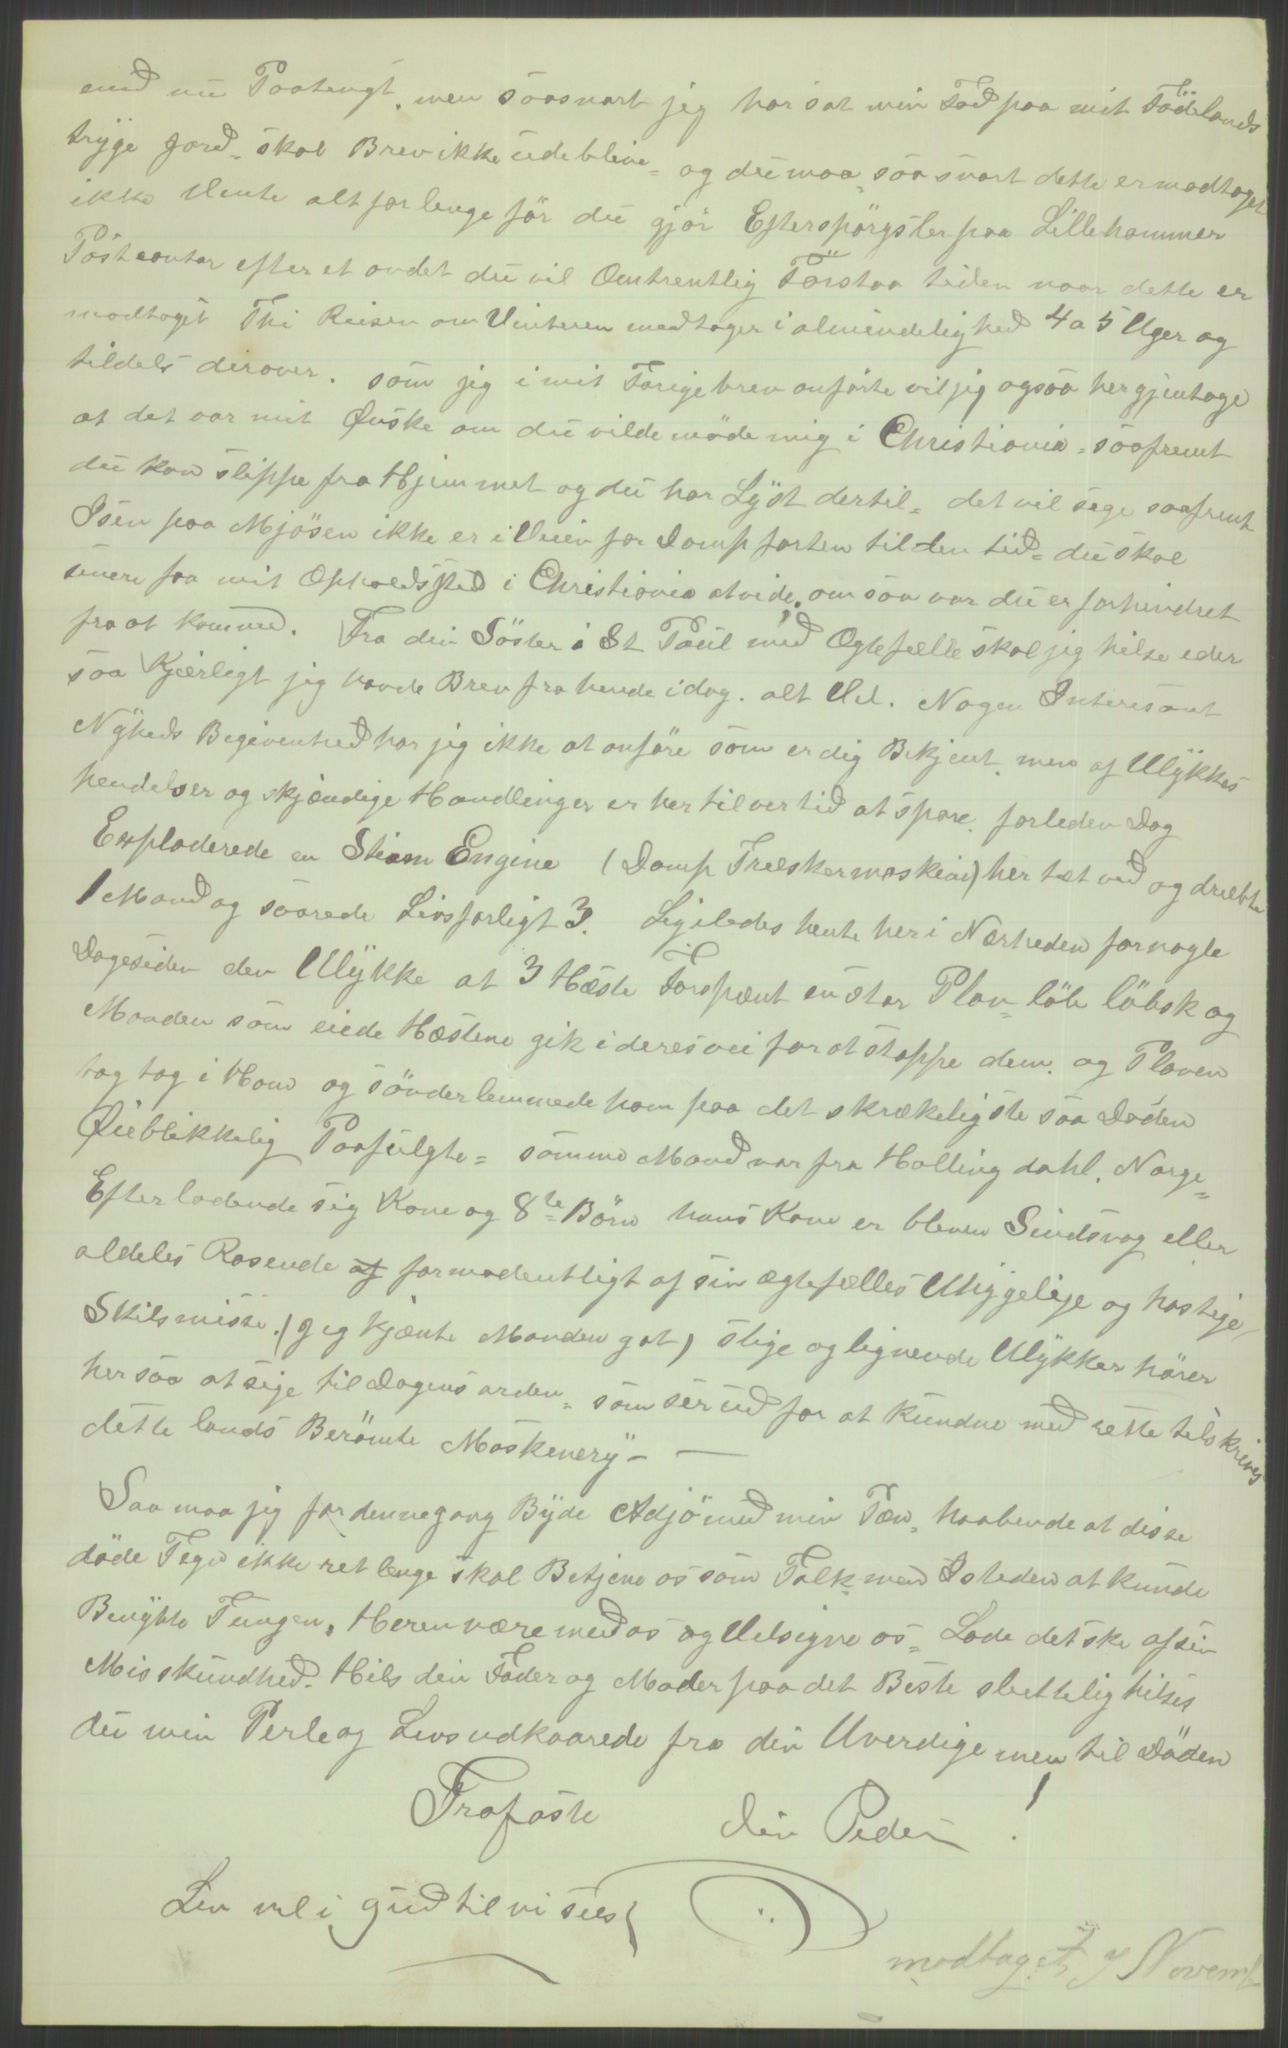 med nu Paatengt. men saasnart jeg har sat min Fod paa mit Födelands
trygge Jord, skal Brev ikke udeblive, og du maa saasnart dette er modtaget
ikke Vente alt for lenge för du gjör Efterspörgsler paa Lillehammer
Postcontor efter et andet du vil Omtrentlig Forstaa tiden naar dette er
modtaget Thi Reisen om Vinteren medtager i almindelighed 4 a 5 Uger og
tildels derover. som jeg i mit Forige brev anförte vil jeg ogsaa her gjentage
at det var mit Ønske om du vilde möde mig i Christiania, saafremt
du kan slippe fra Hjemmet og du har Lyst dertil, det vil sege saafremt
Isen paa Mjösen ikke er i Veien for Dampfarten til den tid, du skal
senere faa mit Opholdssted i Christiania at vide, om saa var du er forhindret
fra at komme. Fra din Söster i St Paul med Ogtefelle skal jeg hilse eder
saa Kjærligt jeg havde Brev fra hende idag. alt Vel. Nogen Interesant
Nyheds Begivenhed har jeg ikke at anföre som er dig Bekjent. men af Ulykkes
hendelser og skjændige Handlinger er her til ver tid at spare. forleden Dag
Exploderede en Steam Engine (Damp Træskermaskine) her tæt ved og dræbte
1 Mand og saarede Livsfarligt 3. Ligeledes hente her i Nærheden for nogle
Dage siden den Ulykke at 3 Hæste Forspænt en stor Plov, löb löbsk og
Manden som eiede Hæstene gik i deres vei for at stoppe dem. og Ploven
tog tag i Ham og sönderlemmede ham paa det skrækeligste saa Döden
Øieblikkelig Paafulgte, samme Mand var fra Hallingdahl. Norge,
Efterladende sig Kone og 8te Börn hans Kone er bleven Sindsvag eller
aldeles Rasende af formodentligt af sin ægtefælles Uhyggelige og hastige
Skilsmisse. (Jeg kjænte Manden got) slige og lignende Ulykker hörer
her saa at sige til Dagens orden, som ser ud for at kundne med rette tilskrives
dette lands Berömte Maskenery –
Saa maa jeg for dennegang Byde Adjö med min Pæn, haabende at disse
döde Tegn ikke ret længe skal Betjene os som Talk men Isteden at kunde
Benytte Tungen, Heren være med os og Velsigne os, Lade det ske af sin
Misskundhed. Hils din Fader og Moder paa det Beste sluttelig hilses
du min Perle og Livsudkaarede fra din Uverdige men til Döden
Trofaste din Peder !
Lev vel i Gud til vi sees
modtaget 7 Novemb